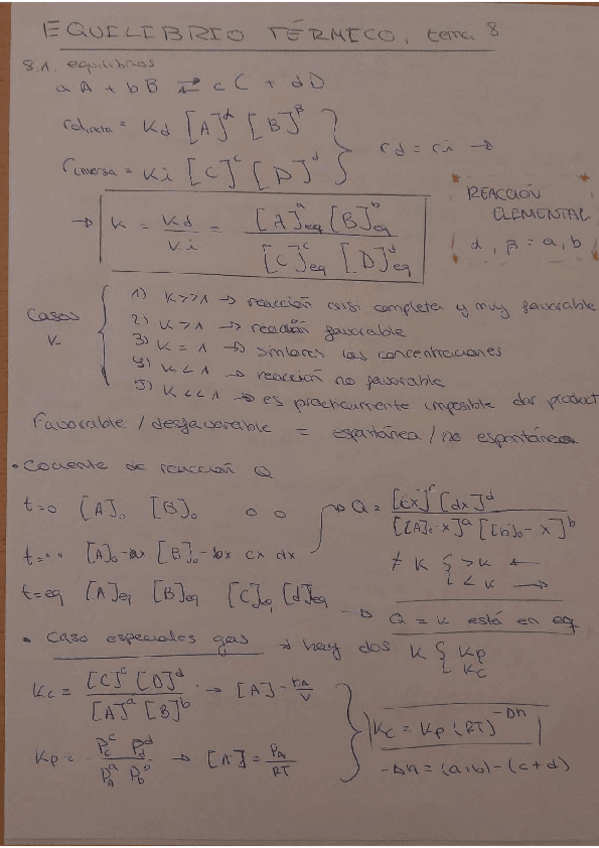 EQUILIBRIO TÉRMICO. tema 8
8.1. equilibrios
aA + bB ⇄ cC + dD
rdirecta = Kd [A]^α [B]^β
rinversa = Ki [C]^c [D]^d
rd = ri →
REACCIÓN
ELEMENTAL
α, β = a, b
→ K = Kd/Ki = [A]^a eq [B]^b eq / [C]^c eq [D]^d eq
Casos
K
1) K>>1 → reacción casi completa y muy favorable
2) K>1 → reacción favorable
3) K = 1 → similares las concentraciones
4) K<1 → reacción no favorable
5) K<<1 → es prácticamente imposible dar product
Favorable / desfavorable = espontánea / no espontánea
• Cociente de reacción Q
t=0 [A]₀ [B]₀ 0 0
→ Q = [cx]^c [dx]^d / [[A]₀-x]^a [[b]₀-x]^b
t=·· [A]₀-ax [B]₀-bx cx dx
≠ K { >K ←
<K →
t=eq [A]eq [B]eq [C]eq [d]eq → Q = K está en eq
• Caso especiales gas → hay dos K { Kp
Kc
Kc = [C]^c [D]^d / [A]^a [B]^b → [A] = nA/V
Kc = Kp (RT)^-Δn
Kp = Pc^c Pd^d / PA^a Pb^b → [A] = PA/RT
-Δn = (a+b) - (c+d)